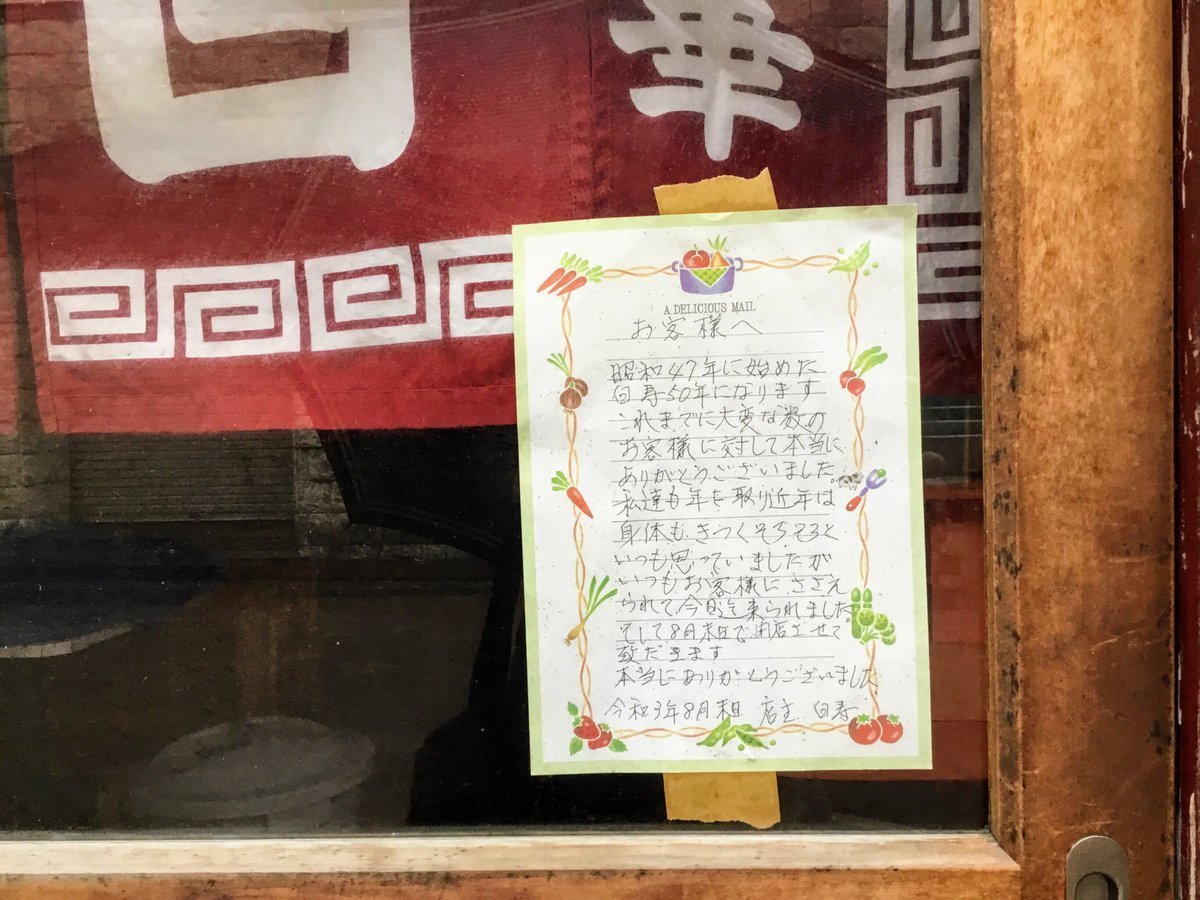 華
A DELICIOUS MAIL
お客様へ
昭和47年に始めた
白寿50年になります
これまでに大変な数の
お客様に対して本当に
ありがとうございました。
私達も年を取り近年は
身体も、きつくそろそろと
いつも思っていましたが
いつもお客様に、ささえ
られて、今日迄来られました。
そして8月末日で閉店させて
致だきます
本当にありがとうございました
令和3年8月末日 店主 白寿